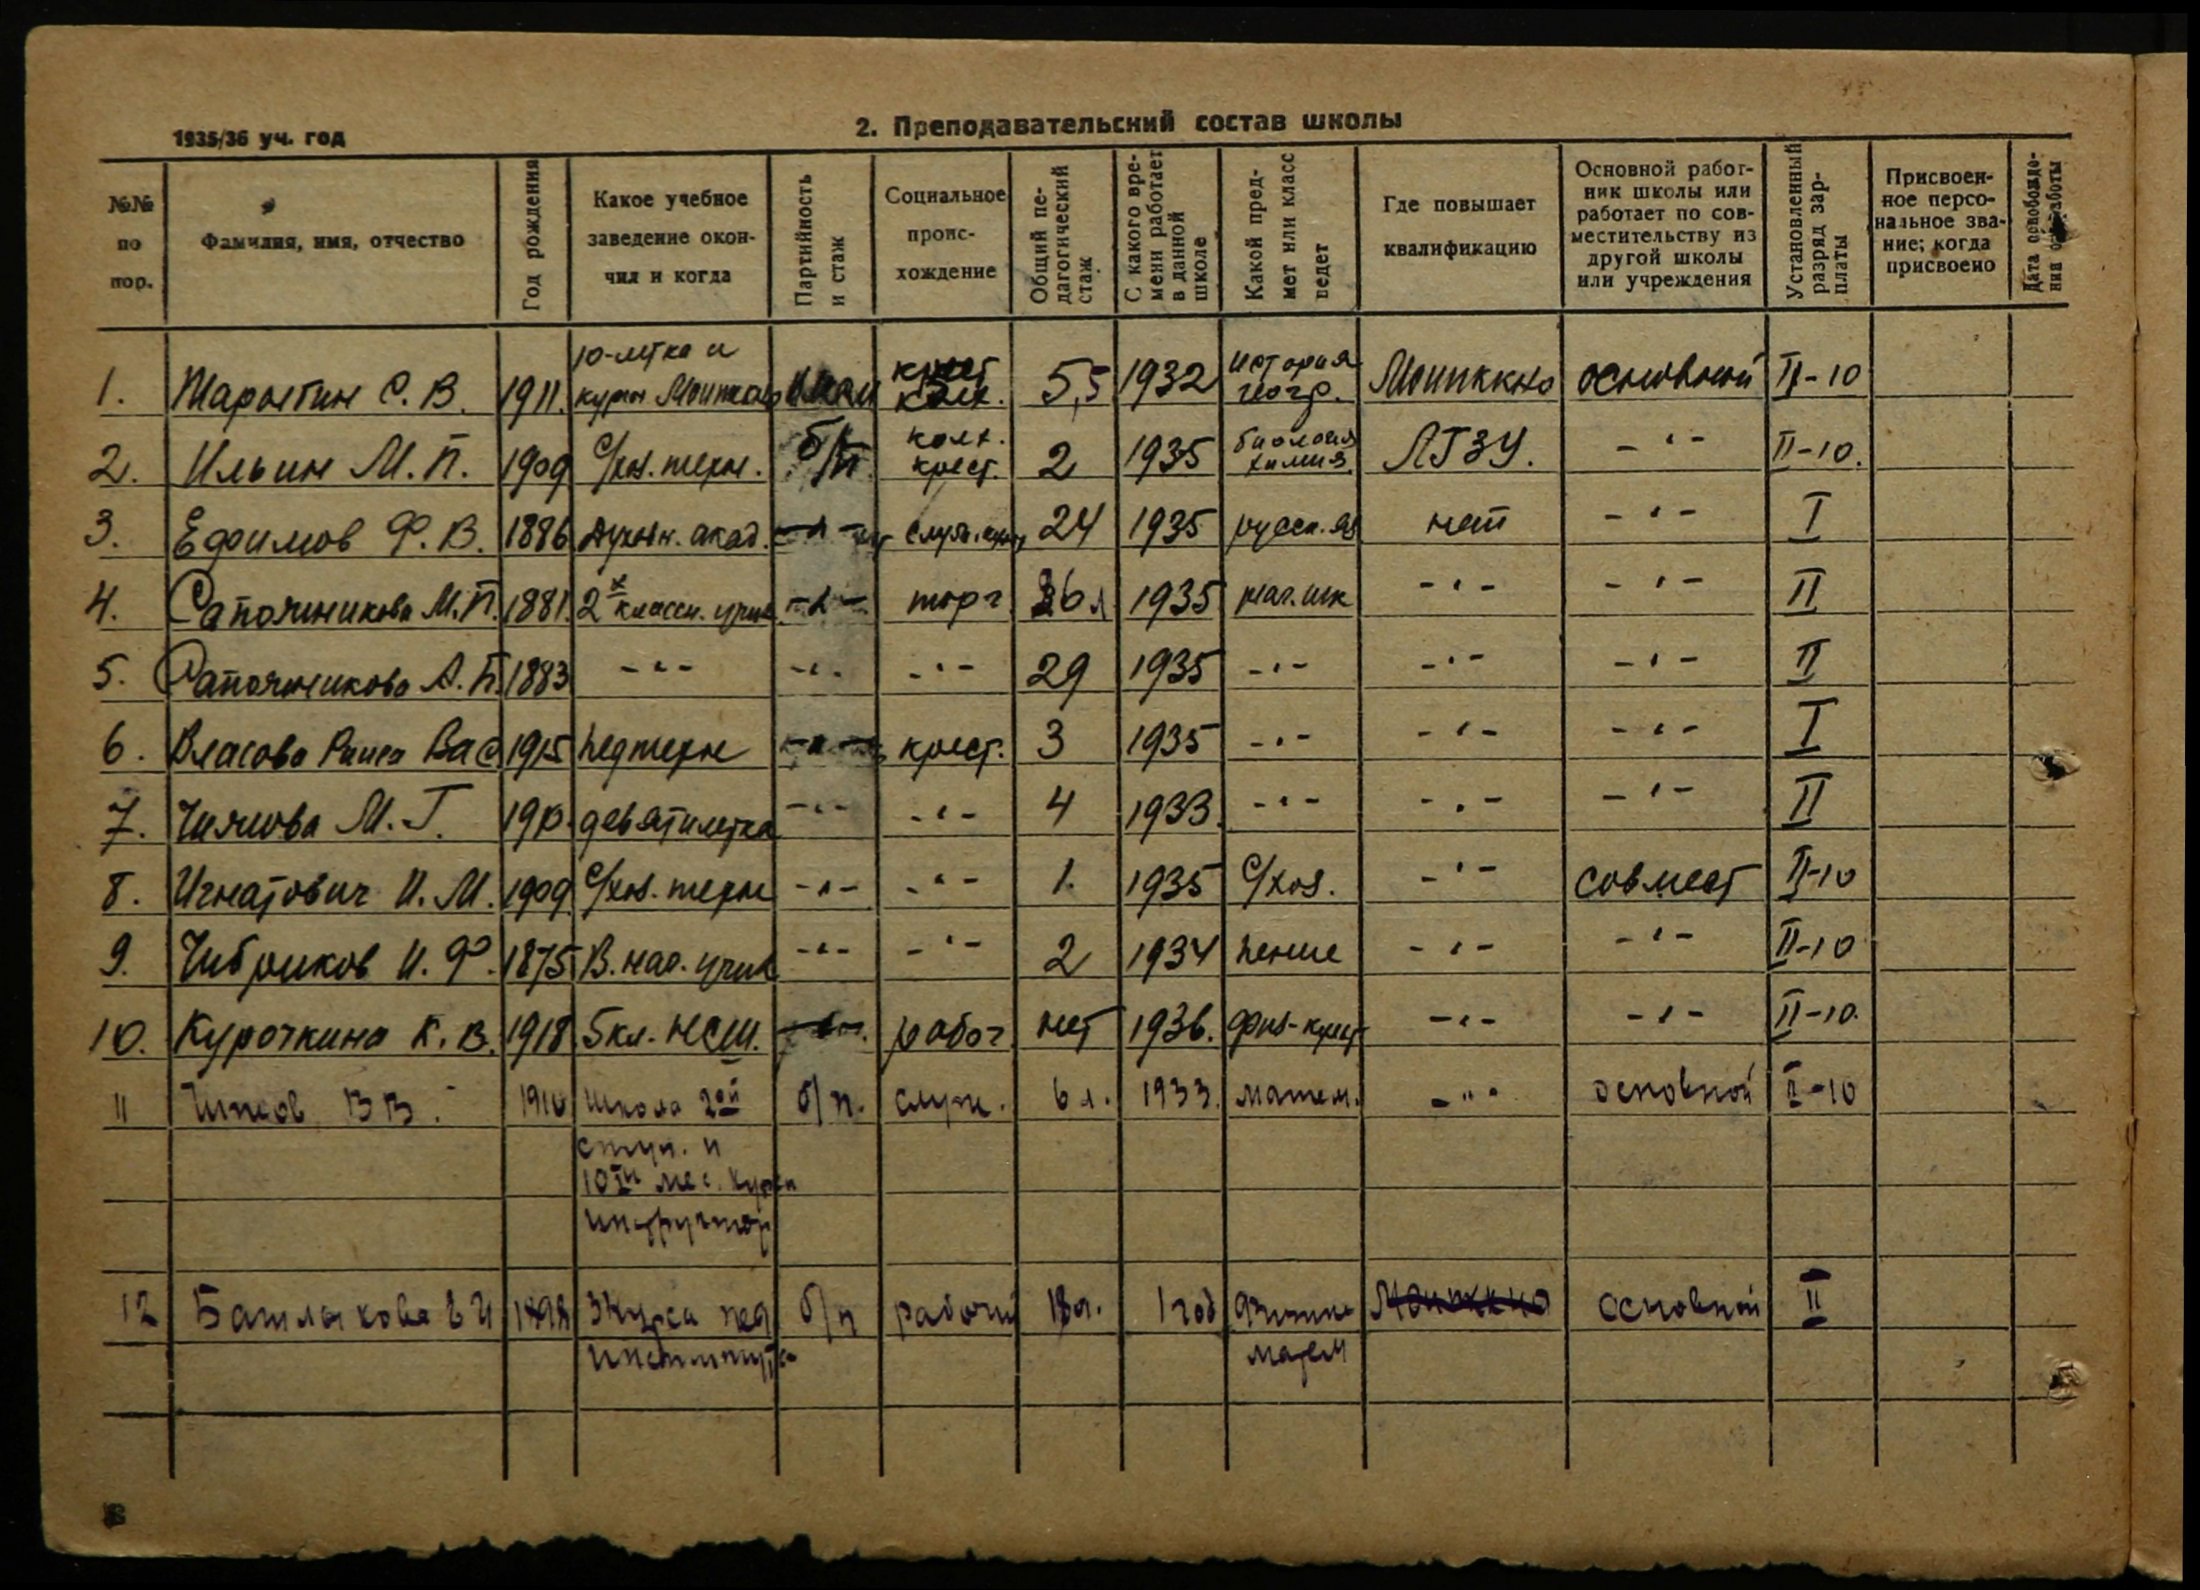 1935/36 уч. год
2. Преподавательский состав школы
№№ по пор.
Фамилия, имя, отчество
Год рождения
Какое учебное заведение окончил и когда
Партийность и стаж
Социальное происхождение
Общий педагогический стаж
С какого времени работает в данной школе
Какой предмет или класс ведет
Где повышает квалификацию
Основной работник школы или работает по совместительству из другой школы или учреждения
Установленный разряд зарплаты
Присвоенное персональное звание; когда присвоено
Дата освобождения от работы
1. С. В. 1911. 10-летка и курсы 5,5 1932 история геогр. основной II-10
2. Ильин М. П. 1909 С/хоз. техн. б/п колх. крест. 2 1935 биология химия ЛГЗУ. -"- II-10.
3. Ефимов Ф. В. 1886 Духовн. акад. -"- 24 1935 русск. яз нет -"- I
4. Сапожникова М. П. 1881. 2х классн. учил. -"- торг. 1935 нач. шк -"- -"- II
5. Сапожникова А. П. 1883 -"- -"- -"- 29 1935 -"- -"- -"- II
6. Власова Раиса Вас 1915 педтехн -"- крест. 3 1935 -"- -"- -"- I
7. М. Г. 1910. девятилетка -"- -"- 4 1933. -"- -"- -"- II
8. Игнатович И. М. 1909. С/хоз. техн -"- -"- 1. 1935 С/хоз. -"- совмест II-10
9. Чибриков И. Ф. 1875 В. нач. учил -"- -"- 2 1934 пение -"- -"- II-10
10. Курочкина К. В. 1918 5 кл. НСШ. -"- рабоч. нет 1936. физ-культ -"- -"- II-10.
11 В В. 1910 школа 2ой б/п. служ. 6 л. 1933. матем. -"- основной II-10
ступ. и
10ти мес. курсы
12 Башлыкова 3 курса пед б/п рабочий 18 л. 1 год физика основной II
института матем